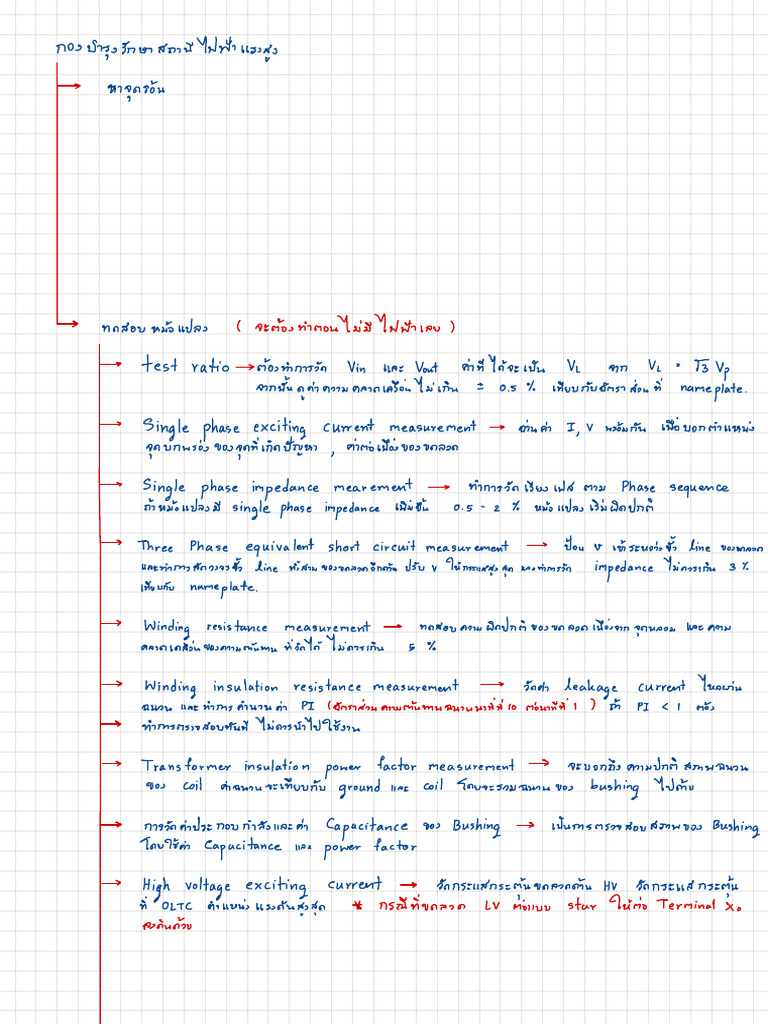 กอง บำรุงรักษา สถานี ไฟฟ้า แรงสูง
หาจุดร้อน
ทดสอบ หม้อแปลง ( จะต้อง ทำตอน ไม่มี ไฟฟ้า เลย )
test ratio → ต้องทำการวัด Vin และ Vout ค่าที่ ได้จะเป็น VL จาก VL = √3 Vp
จากนั้น ดูค่า ความ คลาดเคลื่อน ไม่เกิน ± 0.5 % เทียบกับอัตราส่วน ที่ nameplate.
Single phase exciting current measurement → อ่านค่า I, V พร้อมกัน เพื่อ บอกตำแหน่ง
จุดบกพร่อง ของจุดที่เกิดปัญหา , ค่าต่อเนื่อง ของขดลวด
Single phase impedance mearement → ทำการวัด เรียงเฟส ตาม Phase sequence
ถ้าหม้อแปลง มี single phase impedance เพิ่มขึ้น 0.5 - 2 % หม้อ แปลง เริ่ม ผิดปกติ
Three Phase equivalent short circuit measurement → ป้อน v เข้าระหว่างขั้ว line ของขดลวด
และทำการ ลัดวงจรขั้ว line ทั้งสามของขดลวดอีกด้าน ปรับ v ให้กระแสสูงสุด และทำการวัด impedance ไม่ควรเกิน 3 %
เทียบกับ nameplate.
Winding resistance measurement → ทดสอบ ความ ผิดปกติ ของ ขดลวด เนื่องจาก จุดหลอม และ ความ
คลาดเคลื่อนของความต้านทาน ที่วัดได้ ไม่ควรเกิน 5 %
Winding insulation resistance measurement → วัดค่า leakage current ไหลผ่าน
ฉนวน และ ทำการ คำนวน ค่า PI ( อัตราส่วนความต้านทานฉนวนนาทีที่ 10 ต่อนาทีที่ 1 ) ถ้า PI < 1 ต้อง
ทำการตรวจสอบทันที ไม่ควรนำไปใช้งาน
Transformer insulation power factor measurement → จะบอกถึง ความปกติ สภาพฉนวน
ของ coil ค่าฉนวนจะเทียบกับ ground และ coil โดยจะรวมฉนวน ของ bushing ไปด้วย
การวัดค่าประกอบกำลังและค่า Capacitance ของ Bushing → เป็นการตรวจสอบ สภาพของ Bushing
โดยใช้ค่า Capacitance และ power factor
High voltage exciting current → วัดกระแสกระตุ้นขดลวดด้าน HV วัดกระแส กระตุ้น
ที่ OLTC ตำแหน่ง แรงดันสูงสุด * กรณีที่ขดลวด LV ต่อแบบ star ให้ต่อ Terminal X₀
ลงดินด้วย